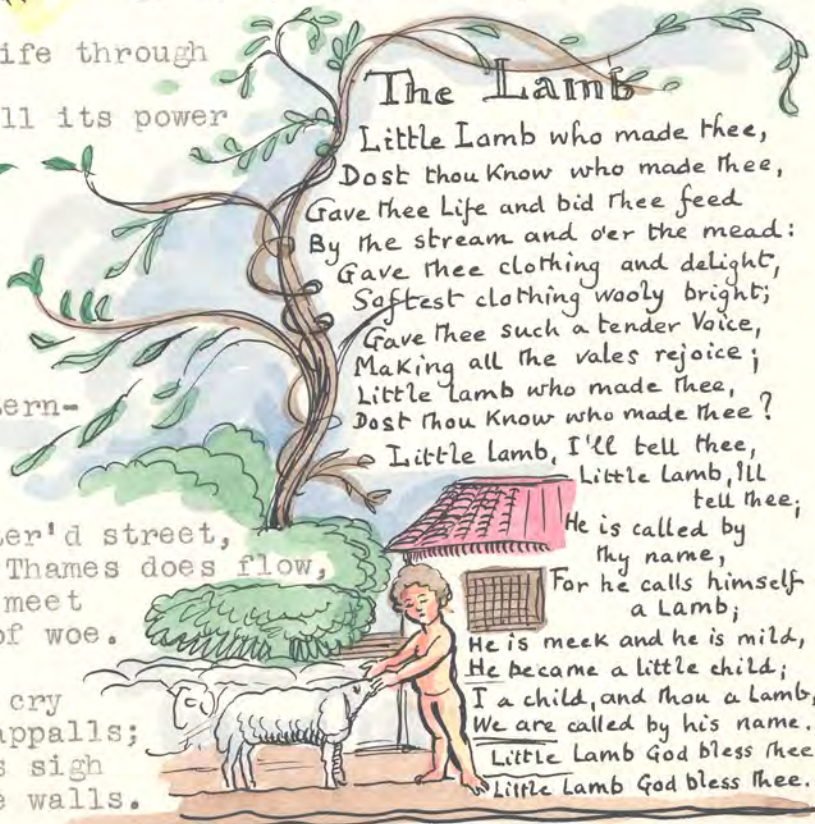 ife through
ll its power
ern-
er'd street,
Thames does flow,
meet
of woe.
cry
appalls;
s sigh
e walls.
The Lamb
Little Lamb who made thee,
Dost thou Know who made thee,
Gave thee Life and bid thee feed
By the stream and o'er the mead:
Gave thee clothing and delight,
Softest clothing wooly bright;
Gave thee such a tender Voice,
Making all the vales rejoice;
Little Lamb who made thee,
Dost thou Know who made thee?
Little lamb, I'll tell thee,
Little Lamb, I'll
tell thee;
He is called by
thy name,
For he calls himself
a Lamb;
He is meek and he is mild,
He became a little child;
I a child, and thou a Lamb,
We are called by his name.
Little Lamb God bless thee
Little Lamb God bless thee.